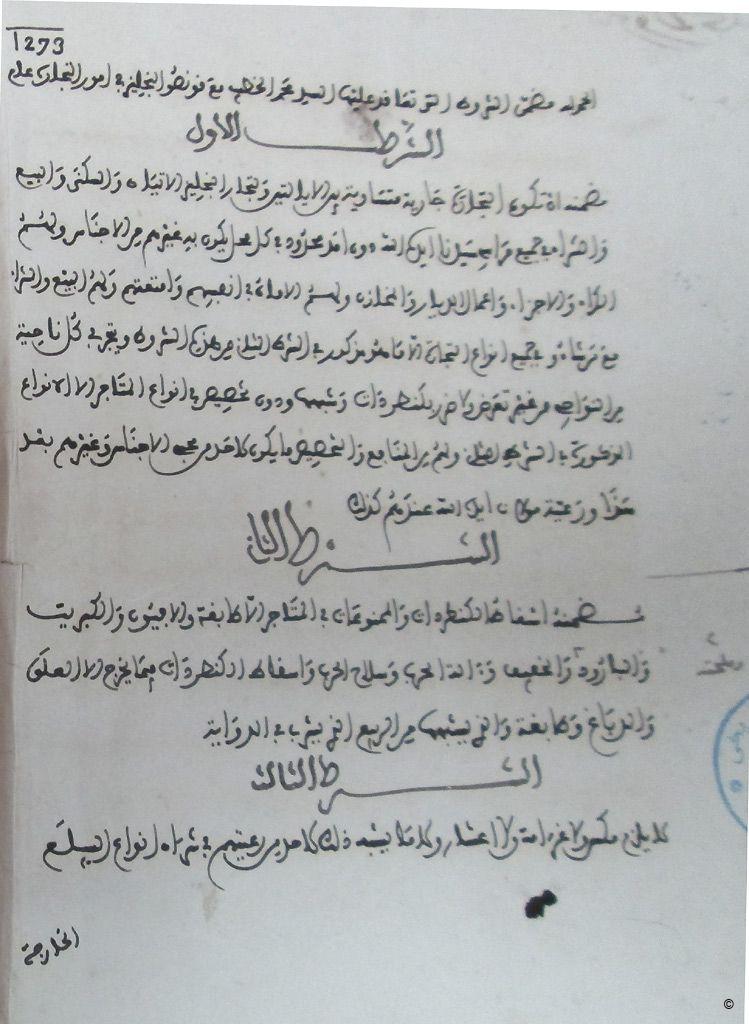 1273
الحمد لله مضمن الشروط التي تعاقد عليها السيد محمد الخطيب مع قونصو النجليز في امور التجارة على
الشرط الاول
مضمنه ان تكون التجارة جارية متساوية بين الايالتين ولتجار النجليز الاتيان والسكنى والبيع
والشراء في جميع مراسي سيدنا ايده الله دون امد محدود في كل محل يكون به غيرهم من الاجناس ولهم
الكراء والاجراء واعمال الديار والخازن ولهم الامان في انفسهم وامتعتهم ولهم البيع والشراء
مع من شاءوا في جميع انواع التجارة الا ما هو مذكور في الشرط الثاني من هذه الشروط وتجر في كل ناحية
من النواحي من غير تعرض ولا ضرر بكنطردات وشبهها ودون تخصيص في انواع المتاجر الا الانواع
المذكورة في الشرط الثاني ولهم من المنافع والتخصيص ما يكون لاحد من الاجناس وغيرهم بعد
هذا ورعية مولانا ايده الله عندهم كذلك
الشرط الثاني
مضمنه اسقاط الكنطردات والممنوعات في المتاجر الا طابغة والافيون والكبريت
والبارود والخفيف وءالة الحرب وسلاح الحرب واسقاط الكنطردات مما يخرج الا العلق
والدباغ وطابغة والتي يشبهها من الربيع التي يشرب في الدواية
الشرط الثالث
لا يلزم مكس ولا غرامة ولا اعشار ولا ما يشبه ذلك لاحد من رعيتهم في شراء انواع السلع
الخارجة
©